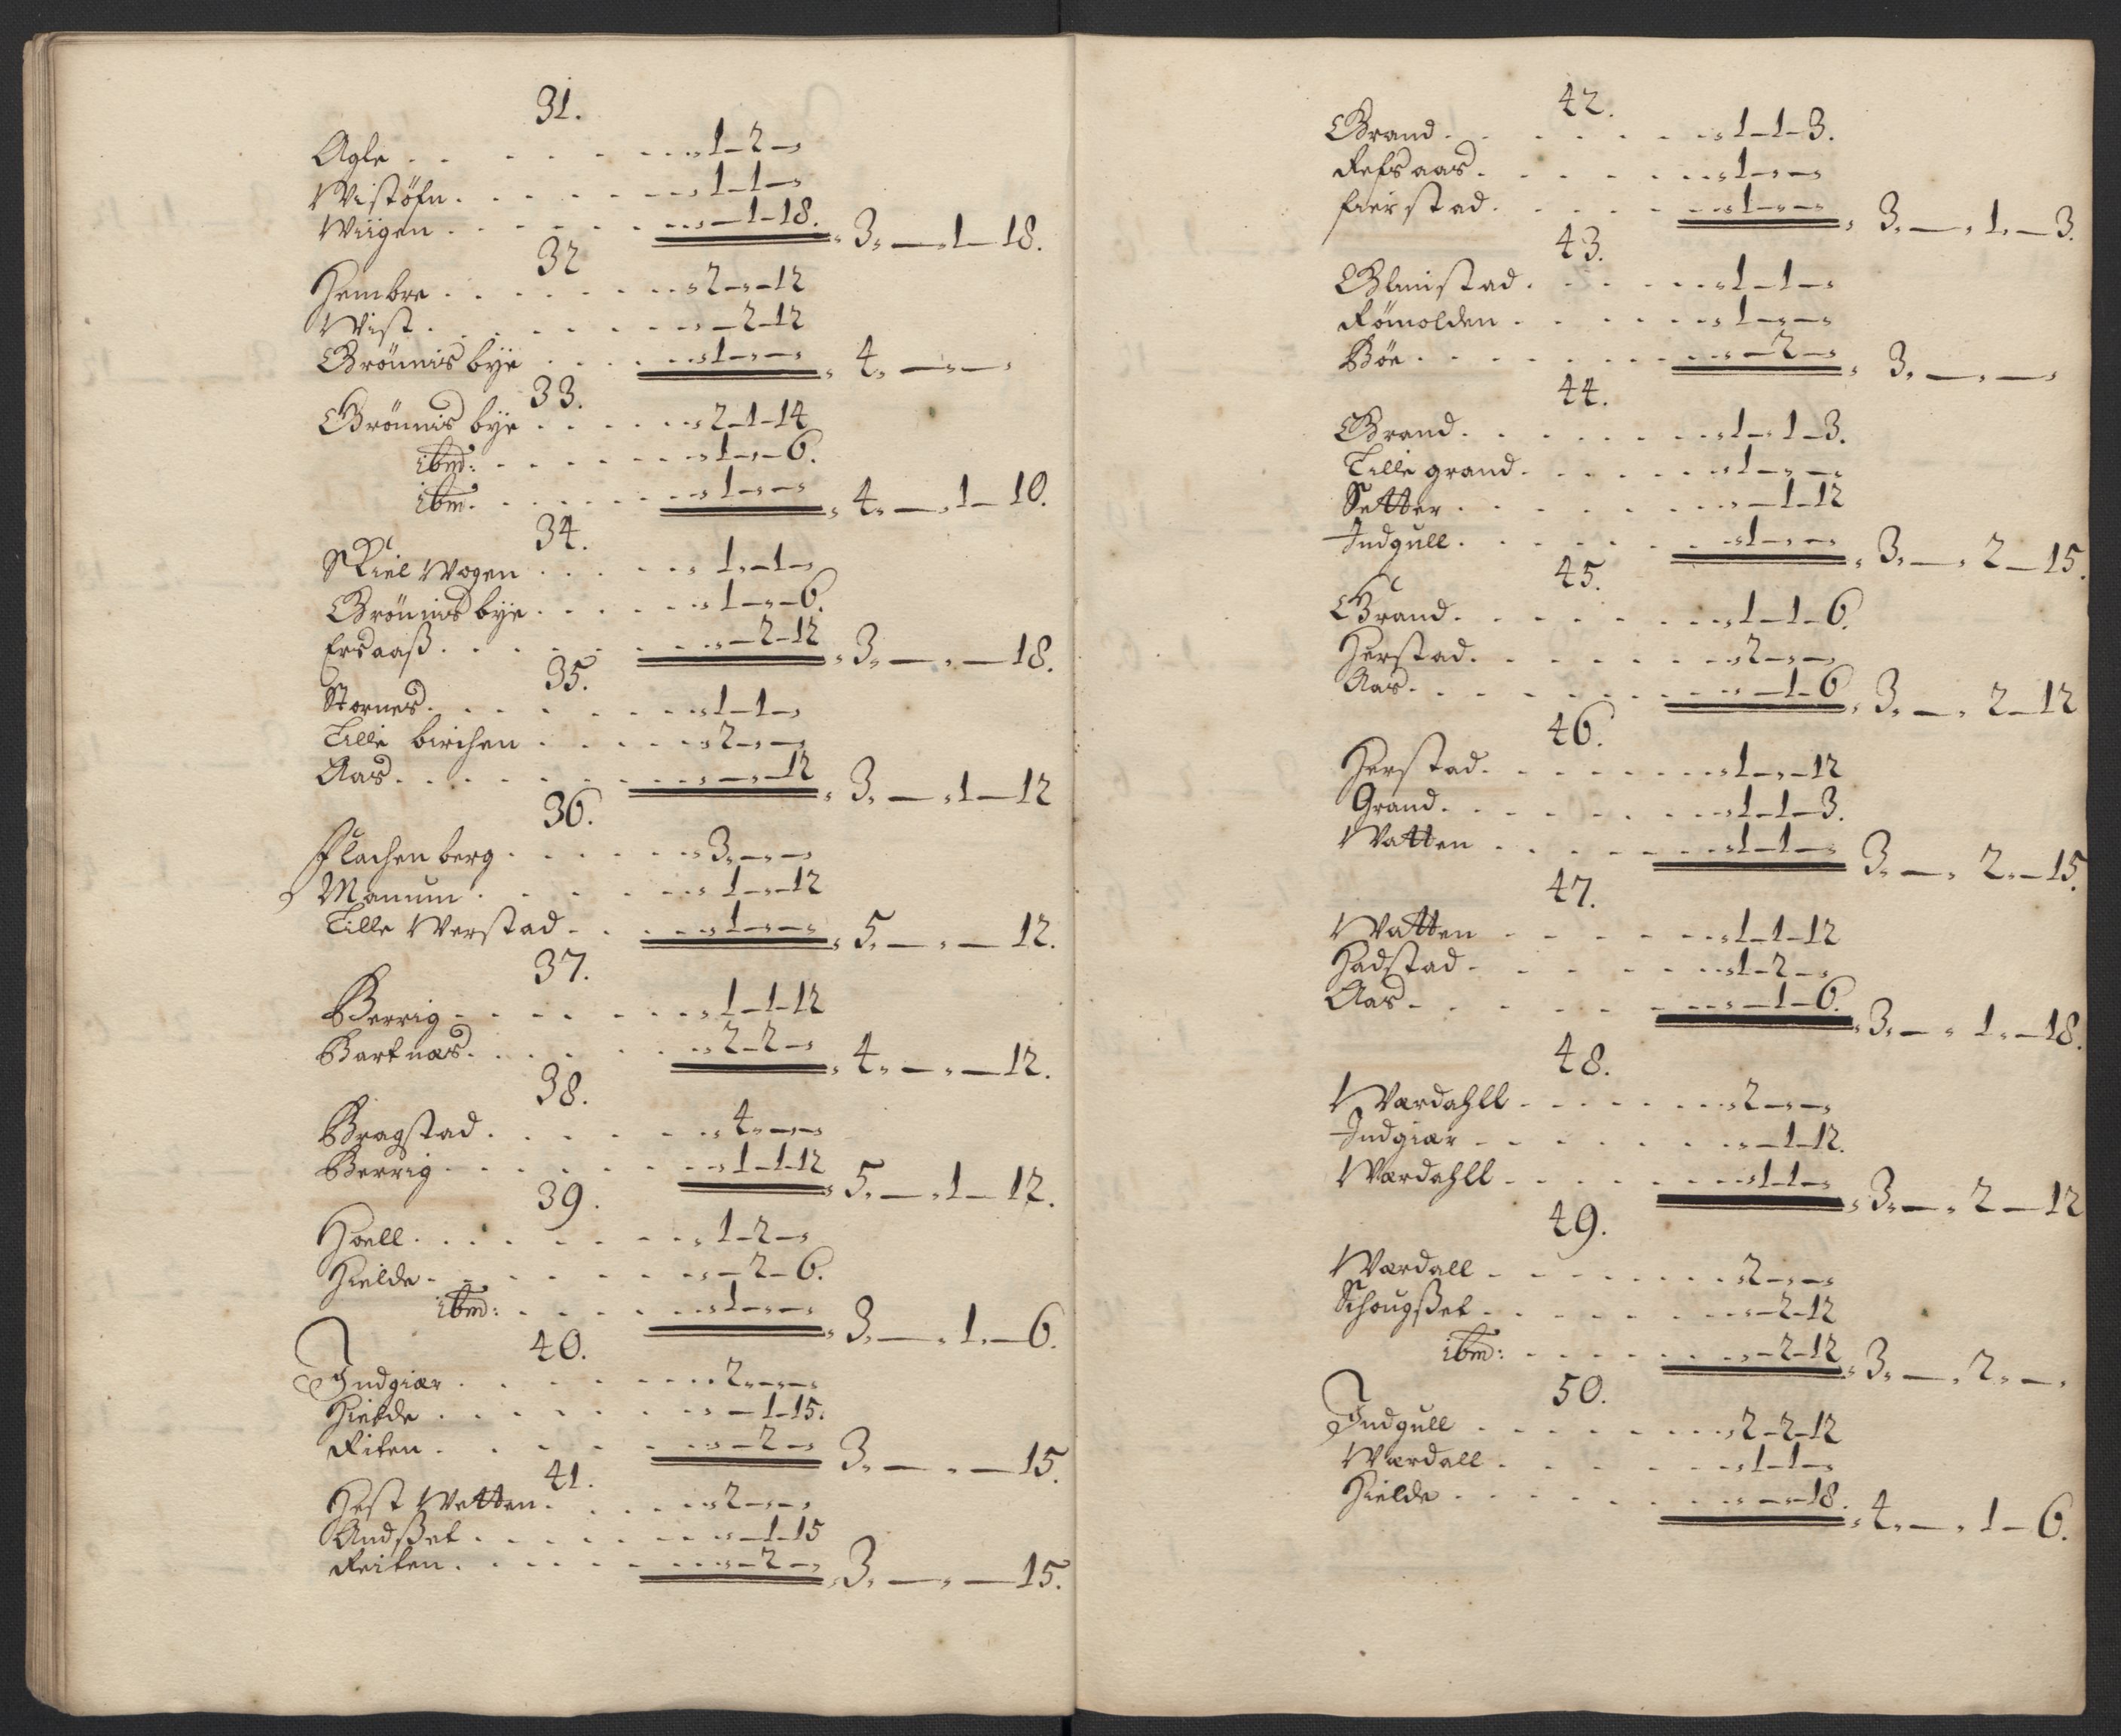 31.
Agle . . . . . . . „ 1 – 2 – „
Wistöfn . . . . . . „ 1 – 1 – „
Wiigen . . . . . . „ – 1 – 18. „ 3. – „ 1 – 18.
32
Hembre . . . . . . „ 2 – „ – 12
Wist . . . . . . „ – 2 – 12
Grönnis bÿe . . . . „ 1 – „ – „ „ 4. – „ – „
33.
Grönnis bÿe . . . . . „ 2 – 1 – 14
ibmd: . . . . . . „ 1 – „ – 6.
ibm. . . . . . „ 1 – „ – „ „ 4. – „ 1 – 10.
34.
Skiel Wogen . . . . . „ 1. – 1 – „
Grönnis bÿe . . . . . „ 1 – „ – 6.
Ersaaß . . . . . . „ – 2 – 12 „ 3. – „ – 18.
35.
Stornes . . . . . . „ 1 – 1 – „
Lille birchen . . . . „ 2 – „ – „
Aas . . . . . . „ – „ – 12 „ 3. – „ 1 – 12
36.
Flachen berg . . . . . „ 3. – „ – „
Manum . . . . . . „ 1 – „ – 12
Lille Werstad . . . . „ 1 – „ – „ „ 5. – „ – 12.
37.
Berrig . . . . . . „ 1 – 1 – 12
Bartnæs . . . . . . „ 2 – 2 – „ „ 4. – „ – 12.
38.
Bragstad . . . . . . „ 4. – „ – „
Berrig . . . . . . „ 1 – 1 – 12 „ 5. – „ 1 – 12.
39.
Hoell . . . . . . „ 1 – 2 – „
Hielde . . . . . . „ – 2 – 6.
ibmd: . . . . . „ 1 – „ – „ „ 3. – „ 1. – 6.
40.
Indgiær . . . . . . „ 2. – „ – „
Hielde . . . . . . „ – 1 – 15.
Riten . . . . . . „ – 2 – „ 3. – „ – 15.
41.
Hest Wetten . . . . . „ 2 – „ – „
Andßet . . . . . . „ – 1 – 15
Reiten . . . . . . „ – 2 – „ „ 3. – „ – 15.
42.
Grand . . . . . . „ 1 – 1 – 3.
Refsaas . . . . . . „ 1 – „ – „
fierstad . . . . . . „ 1 – „ – „ „ 3. – „ 1. – 3.
43.
Glmistad . . . . . „ 1 – 1 – „
Römolden . . . . . „ 1 – „ – „
Böe . . . . . . „ – 2 – „ „ 3. – „ – „
44.
Grand . . . . . . „ 1 – 1 – 3.
Lille grand . . . . . „ 1 – „ – „
Setter . . . . . . „ – 1 – 12
Indgull . . . . . . „ 1 – „ – „ „ 3. – „ 2 – 15.
45.
Grand . . . . . . „ 1 – 1 – 6.
Herstad . . . . . . „ 2 – „ – „
Aas . . . . . . „ – 1 – 6 „ 3. – „ 2 – 12
46.
Herstad . . . . . . „ 1 – „ – 12
Grand . . . . . . „ 1 – 1 – 3.
Watten . . . . . . „ 1 – 1 – „ 3. – „ 2. – 15.
47.
Watten . . . . . . „ 1 – 1 – 12
Hadstad . . . . . . „ 1 – 2 – „
Aas . . . . . . „ – 1 – 6. „ 3. – „ 1. – 18.
48.
Wærdahll . . . . . . „ 2 – „ – „
Indgiær . . . . . . „ – 1 – 12.
Wærdahll . . . . . . „ 1 – 1 – „ „ 3. – „ 2 – 12
49.
Wærdall . . . . . . „ 2 – „ – „
Schougßet . . . . . . „ – 2 – 12
ibmd: . . . . . . „ – 2 – 12 „ 3. – „ 2. – „
50.
Indgull . . . . . . „ 2 – 2 – 12
Wærdall . . . . . . „ 1 – 1 – „
Hielde . . . . . . „ – „ – 18. „ 4. – „ 1 – 6.